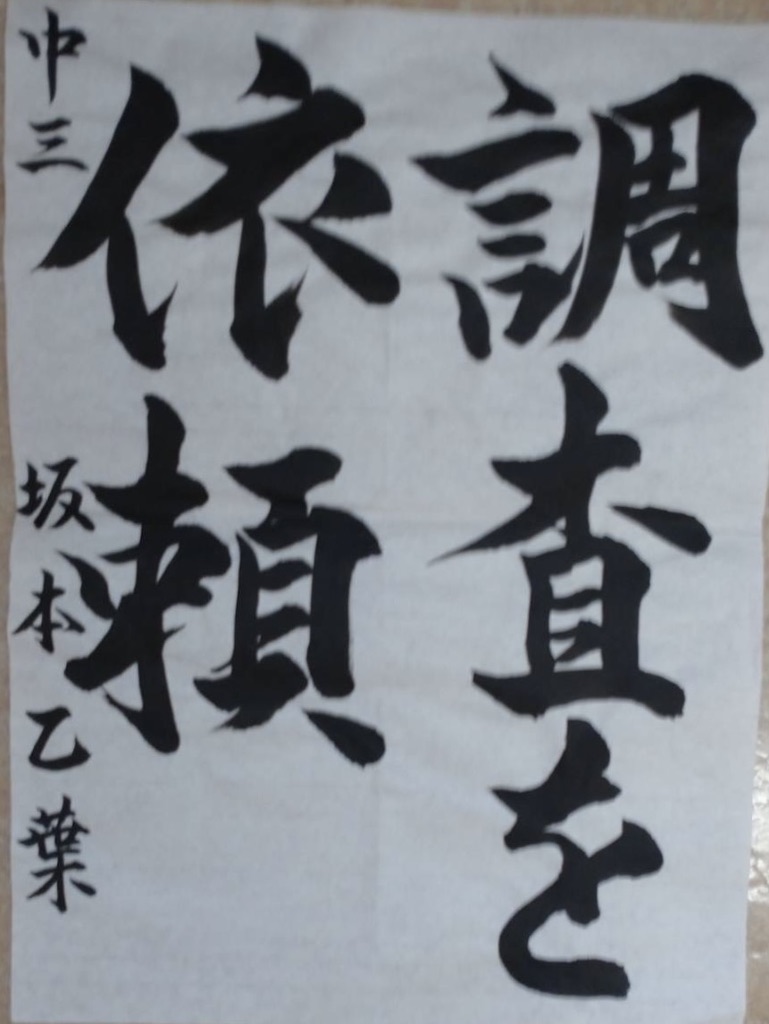 調査を
依頼
中三 坂本乙葉